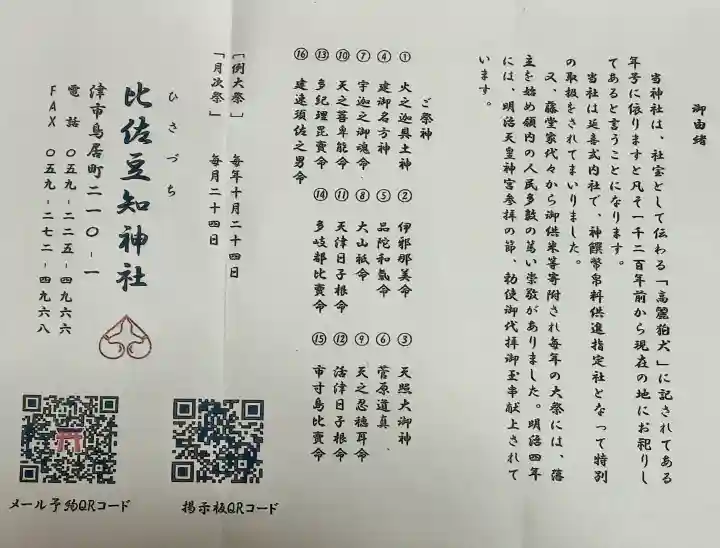 御由緒
当神社は、社宝として伝わる「高麗狛犬」に記されてある
年号に依りますと凡そ一千二百年前から現在の地にお祀りし
てあると言うことになります。
当社は延喜式内社で、神饌幣帛料供進指定社となって特別
の取扱をされてまいりました。
又、藤堂家代々から御供米等寄附され毎年の大祭には、藩
主を始め領内の人民多数の篤い崇敬がありました。明治四年
には、明治天皇神宮参拝の節、勅使御代拝御玉串献上されて
います。
ご祭神
① 火之迦具土神 ② 伊邪那美命 ③ 天照大御神
④ 建御名方神 ⑤ 品陀和氣命 ⑥ 菅原道真
⑦ 宇迦之御魂命 ⑧ 大山祇命 ⑨ 天之忍穂耳命
⑩ 天之菩卑能命 ⑪ 天津日子根命 ⑫ 活津日子根命
⑬ 多紀理毘賣命 ⑭ 多岐都比賣命 ⑮ 市寸島比賣命
⑯ 建速須佐之男命
「例大祭」 毎年十月二十四日
「月次祭」 毎月二十四日
ひさづち
比佐豆知神社
津市鳥居町二一〇-一
電話 〇五九-二二五-四九六六
FAX 〇五九-二七二-四九六八
メール予約QRコード
掲示板QRコード